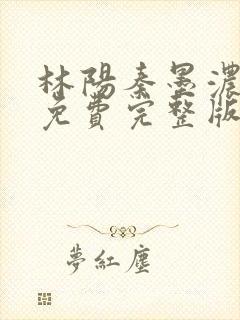 林陽秦墨濃
免費完整版
夢紅塵